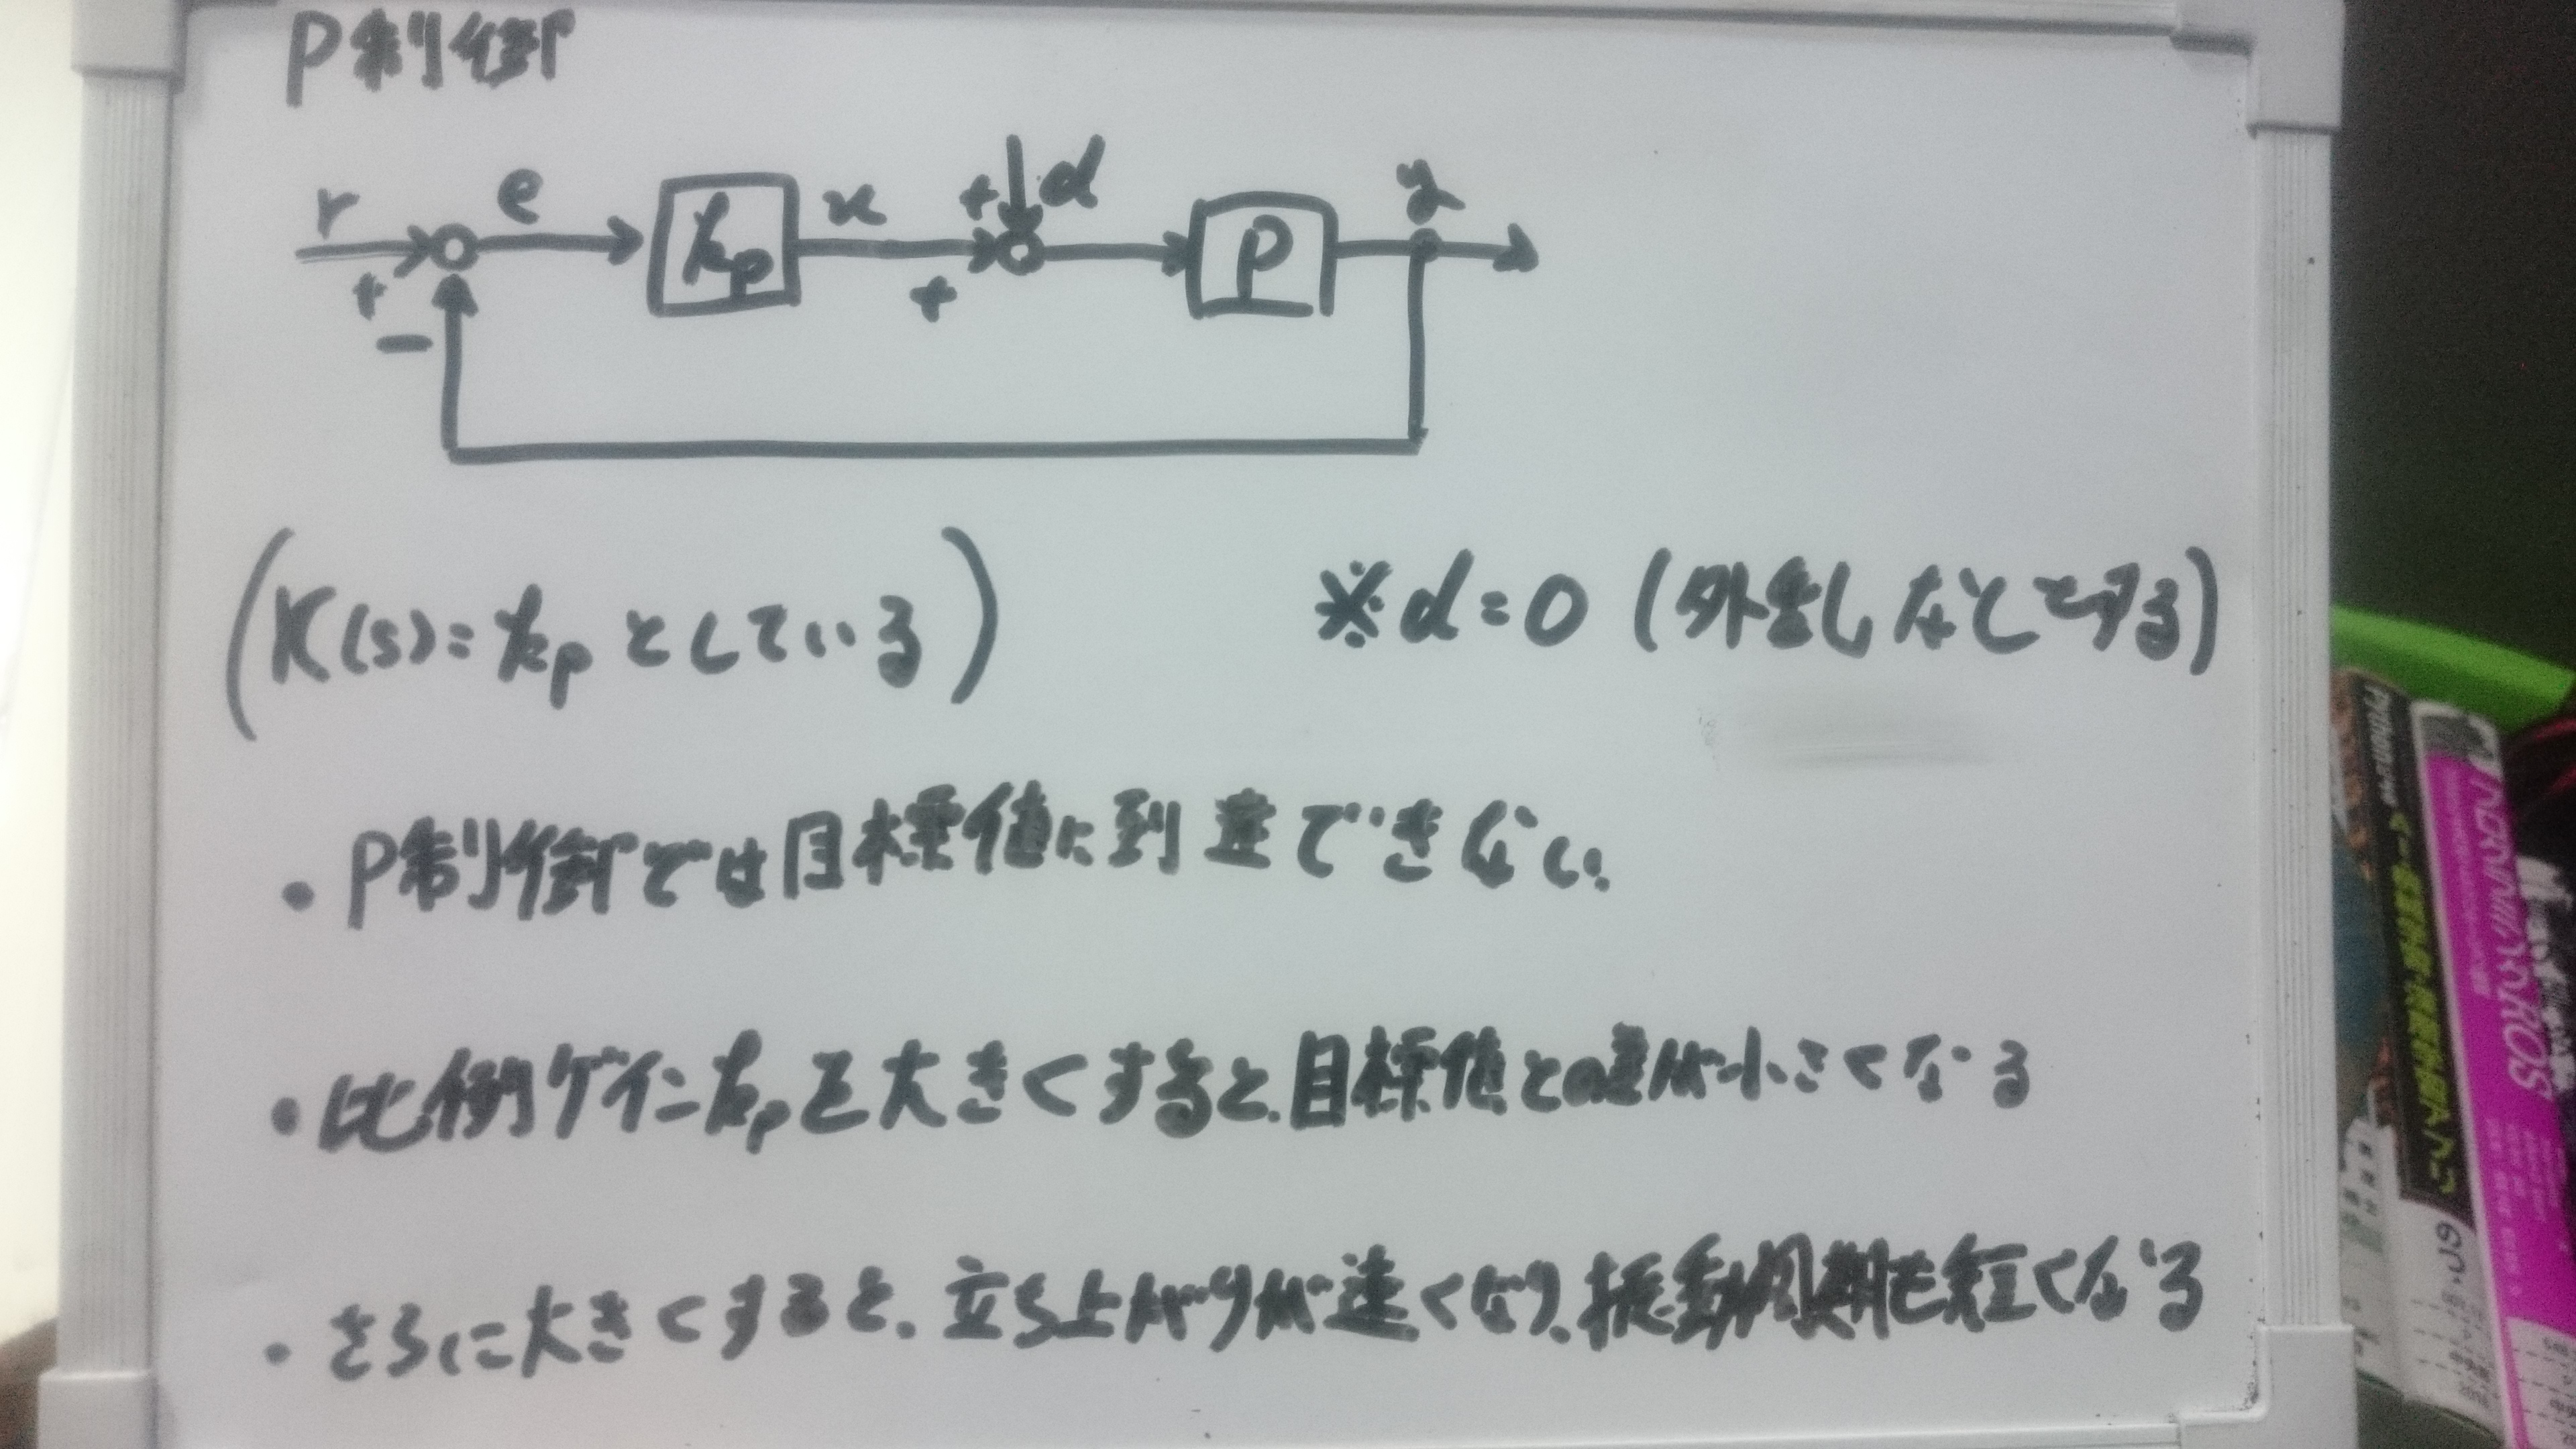 P制御
r e kp u + d P y
+ +
-
(K(s)=kpとしている) ※d=0 (外乱しなとする)
・P制御では目標値に到達できない
・比例ゲインkpを大きくすると、目標値との差が小さくなる
・さらに大きくすると、立ち上がりが速くなり、振動周期も短くなる